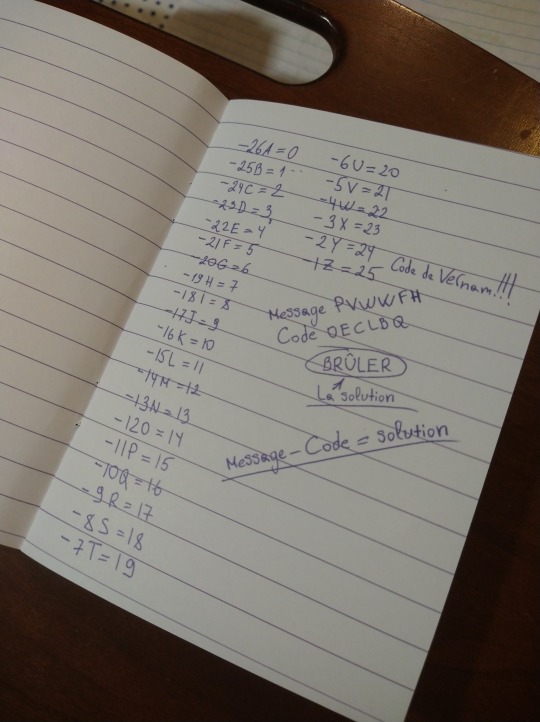 -26A = 0
-25B = 1
-24C = 2
-23D = 3
-22E = 4
-21F = 5
-20G = 6
-19H = 7
-18I = 8
-17J = 9
-16K = 10
-15L = 11
-14M = 12
-13N = 13
-12O = 14
-11P = 15
-10Q = 16
-9R = 17
-8S = 18
-7T = 19
-6U = 20
-5V = 21
-4W = 22
-3X = 23
-2Y = 24
-1Z = 25
Code de Vernam!!!
Message PVWWFH
Code OECLBQ
BRÛLER
La solution
Message - Code = solution